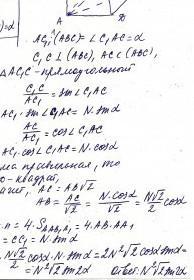 )=α
A
D
AC₁(ABC)=∠C₁AC=α
C₁C⊥(ABC), AC⊂(ABC),
ΔACC₁-прямоугольный
C₁C/AC₁ = sin∠C₁AC
AC₁·sin∠C₁AC=N·sinα
AC/AC₁ = cos∠C₁AC
AC₁·cos∠C₁AC=N·cosα
ма правильная, то
о-квадрат,
AC=AB√2
AB=AC/√2=N·cosα/√2=N√2/2 cosα
п=4·S =4·AB·AA₁
=CC₁=N·sinα
N√2/2 cosα·N·sinα=2N²√2 cosα sinα=
=N²√2 sin2α
Ответ:N²√2 sin2α